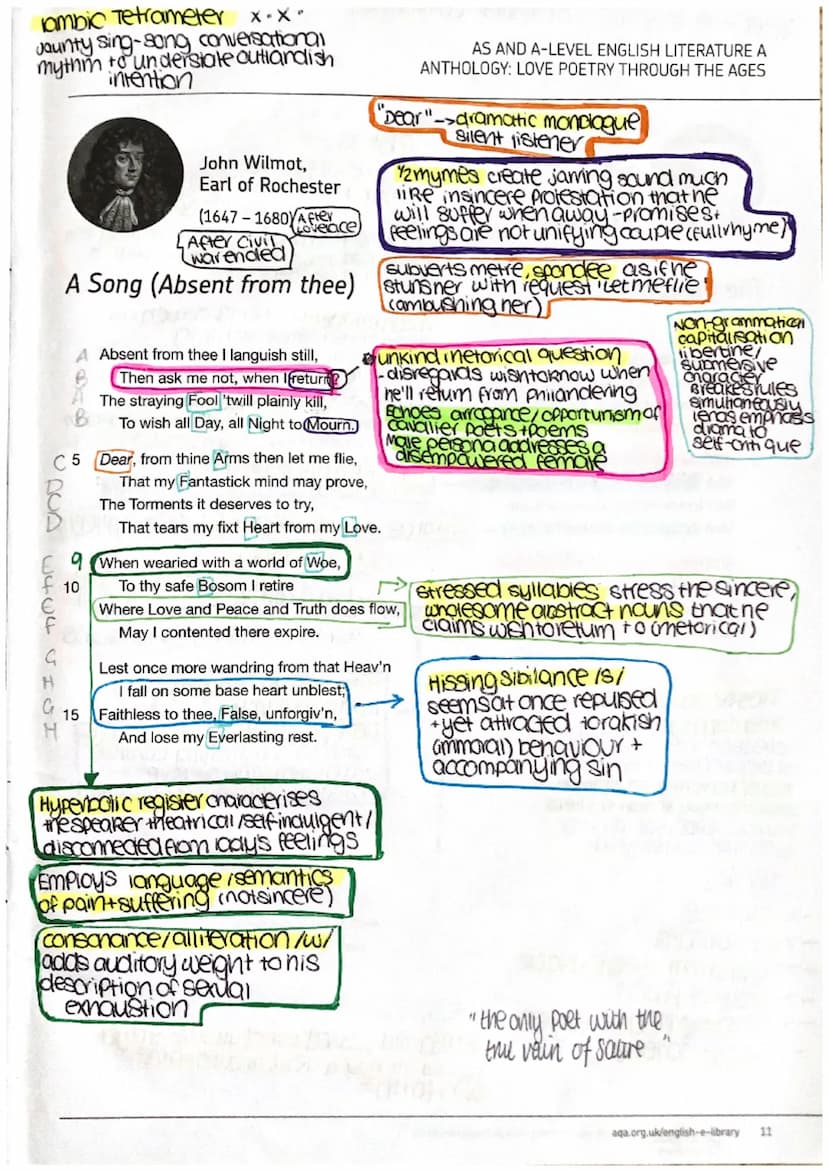 Iambic Tetrameter x . x .
jaunty sing-song conversational
rhythm to understate outlandish
intention
AS AND A-LEVEL ENGLISH LITERATURE A
ANTHOLOGY: LOVE POETRY THROUGH THE AGES
"Dear" -> dramatic monologue
silent listener
John Wilmot,
Earl of Rochester
(1647 – 1680)
After
Lovelace
After civil
war ended
1/2 rhymes create jarring sound much
like insincere protestation that he
will suffer when away - promises +
feelings are not unifying couple (full rhyme)
A Song (Absent from thee)
subverts metre, spondee as if he
stuns her with request 'let me flie'
(ambushing her)
A Absent from thee I languish still,
B Then ask me not, when I return?
A The straying Fool 'twill plainly kill,
B To wish all Day, all Night to Mourn.
unkind rhetorical question
- disregards wish to know when
he'll return from philandering
Echoes arrogance/opportunism of
cavalier poets + poems
Male persona addresses a
disempowered female
Non-grammatical
capitalisation
libertine/
submersive
character
breakes rules
simultaneously
lends emphasis
drama to
self-critique
C 5 Dear, from thine Arms then let me flie,
D That my Fantastick mind may prove,
C The Torments it deserves to try,
D That tears my fixt Heart from my Love.
E 9 When wearied with a world of Woe,
F 10 To thy safe Bosom I retire
E Where Love and Peace and Truth does flow,
F May I contented there expire.
stressed syllables stress the sincere,
wholesome abstract nouns that he
claims wish to return to (rhetorical)
G Lest once more wandring from that Heav'n
H I fall on some base heart unblest;
G 15 Faithless to thee, False, unforgiv'n,
H And lose my Everlasting rest.
Hissing sibilance /s/
seems at once repulsed
+ yet attracted to rakish
(immoral) behaviour +
accompanying sin
Hyperbolic register characterises
the speaker theatrical/self-indulgent/
disconnected from lady's feelings
Employs language/semantics
of pain + suffering (not sincere)
consonance/alliteration /w/
adds auditory weight to his
description of sexual
exhaustion
"the only poet with the
true vain of satire"
aqa.org.uk/english-e-library 11